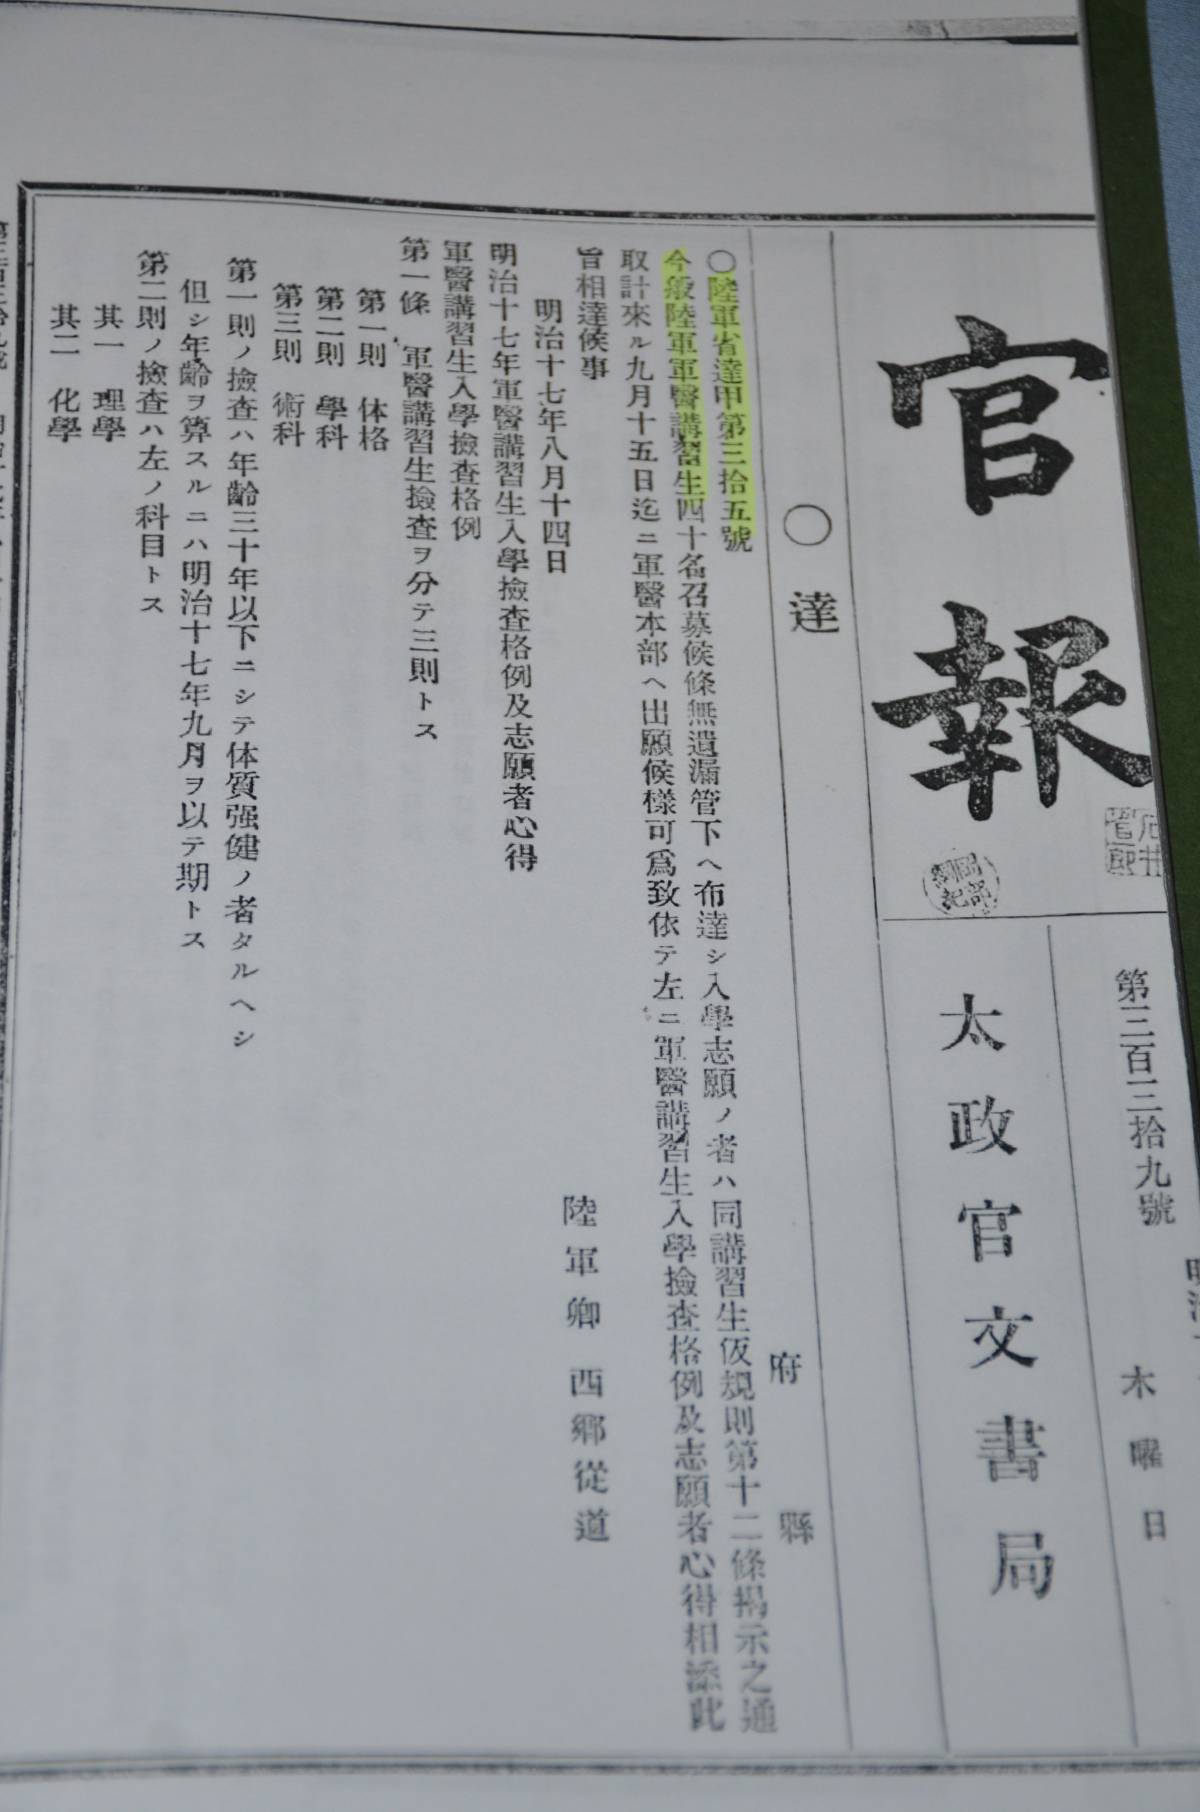 官報
第三百三拾九號
木曜日
太政官文書局
○達
府縣
○陸軍省達甲第三拾五號
今般陸軍軍醫講習生四十名召募候條無遺漏管下ヘ布達シ入學志願ノ者ハ同講習生仮規則第十二條揭示之通
取計來ル九月十五日迄ニ軍醫本部ヘ出願候樣可爲致依テ左ニ軍醫講習生入學撿査格例及志願者心得相添此
旨相達候事
明治十七年八月十四日
陸軍卿 西鄕從道
明治十七年軍醫講習生入學撿査格例及志願者心得
軍醫講習生入學撿査格例
第一條 軍醫講習生撿査ヲ分テ三則トス
第一則 体格
第二則 學科
第三則 術科
第一則ノ撿査ハ年齡三十年以下ニシテ体質强健ノ者タルヘシ
但シ年齡ヲ算スルニハ明治十七年九月ヲ以テ期トス
第二則ノ撿査ハ左ノ科目トス
其一 理學
其二 化學